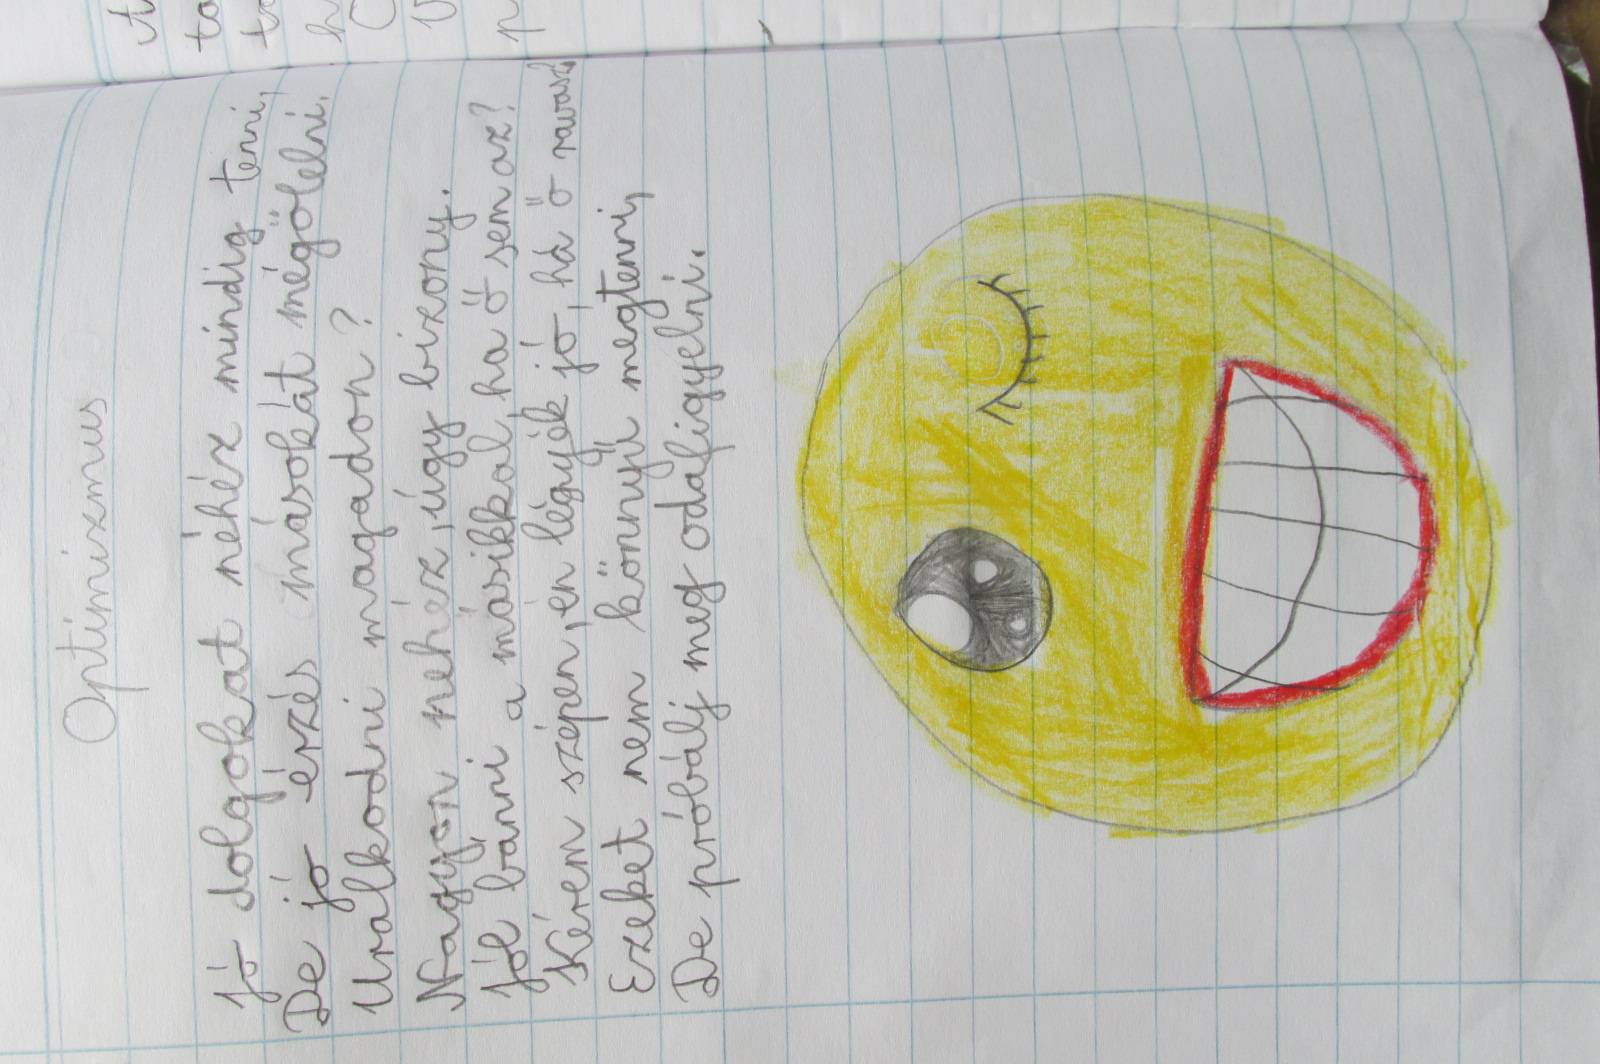 Optimizmus
Jó dolgokat néhéz mindig tenni,
De jó érzés másokát mégölelni.
Uralkodni magadon?
Nagyon nehéz, úgy bizony.
Jól bánni a másikkal, ha ő sem az?
Kérem szépen, én légyék jó, há ő ravasz?
Ezeket nem könnyű megtenni,
De próbálj meg odafigyelni.